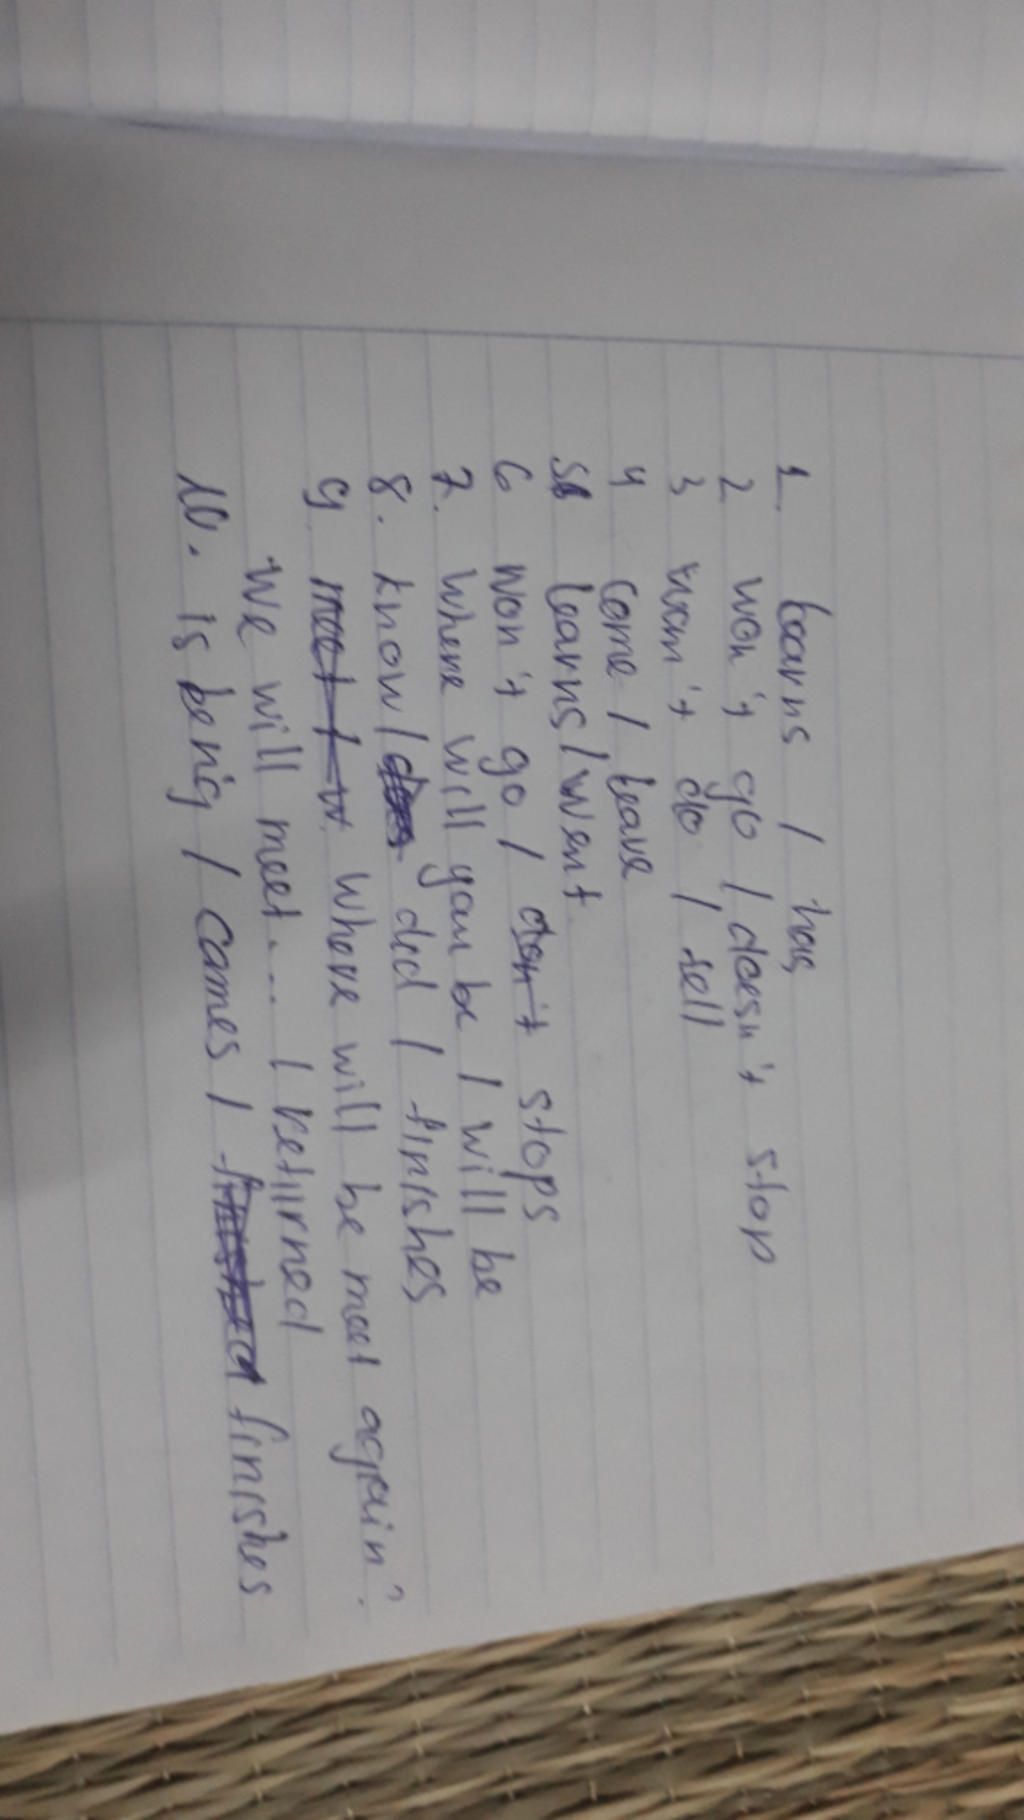 1. learns / has
2 won't go / doesn't stop
3 won't do / tell
4 come / leave
5 learns / went.
6 won't go / don't stops
7. where will you be / will be
8. know / did / finishes
9 where will be meet again?
We will meet.... / returned
10. is being / comes / finishes